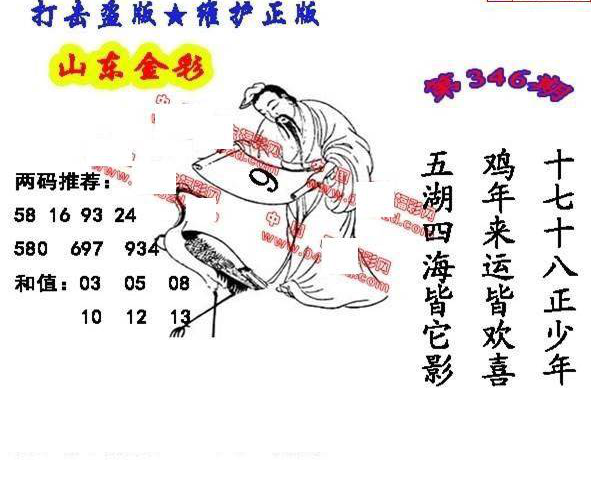 打击盗版★维护正版
山东金彩
第346期
两码推荐：
58 16 93 24
580 697 934
和值：03 05 08
10 12 13
9
十七十八正少年
鸡年来运皆欢喜
五湖四海皆它影